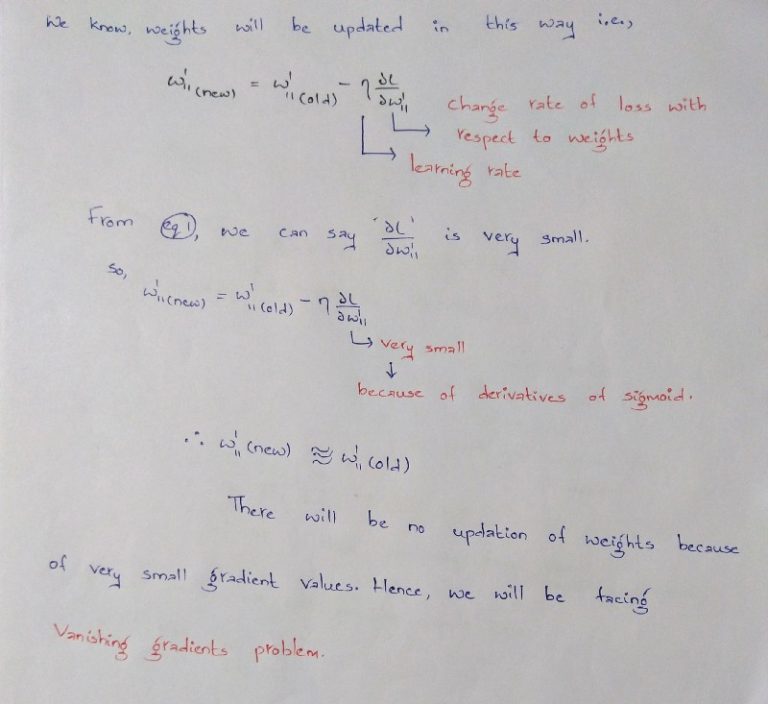 We know, weights will be updated in this way i.e.,
w¹₁₁(new) = w¹₁₁(old) − η ∂L/∂w¹₁₁
change rate of loss with
respect to weights
learning rate
From eq 1, we can say '∂L/∂w¹₁₁' is very small.
So,
w¹₁₁(new) = w¹₁₁(old) − η ∂L/∂w¹₁₁
very small
because of derivatives of sigmoid.
∴ w¹₁₁(new) ≈ w¹₁₁(old)
There will be no updation of weights because
of very small gradient values. Hence, we will be facing
Vanishing gradients problem.